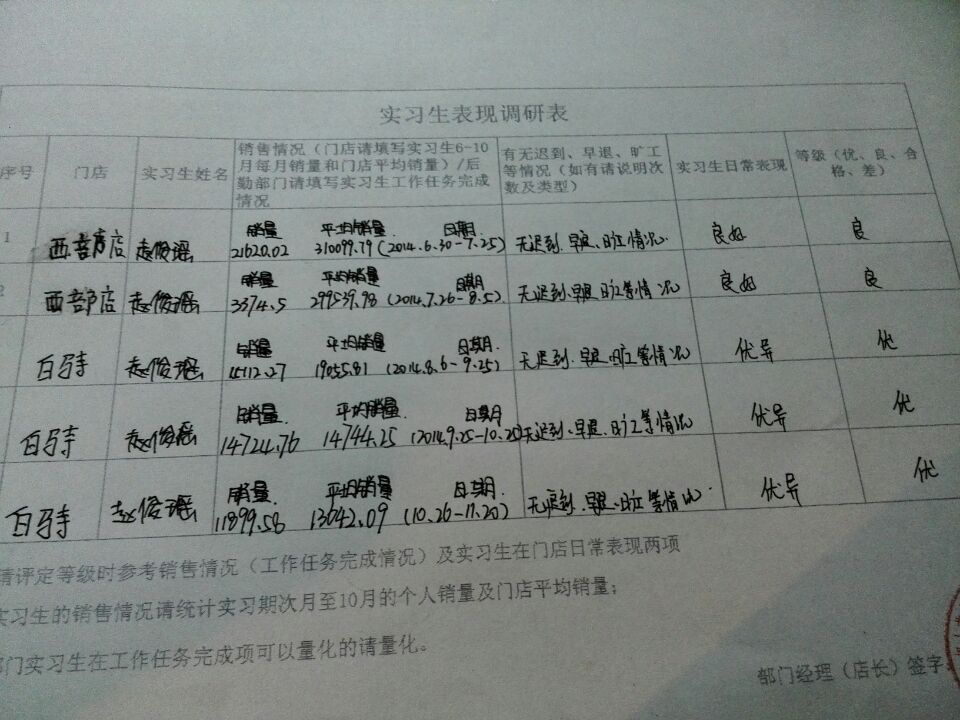 实习生表现调研表
序号 门店 实习生姓名 销售情况（门店请填写实习生6-10月每月销量和门店平均销量）/后勤部门请填写实习生工作任务完成情况 有无迟到、早退、旷工等情况（如有请说明次数及类型） 实习生日常表现 等级（优、良、合格、差）
销量 平均销量 日期
1 西音店 赵俊瑶 21620.02 310099.79 (2014.6.30-7.25) 无迟到、早退、旷工情况. 良好 良
销量 平均销量 日期
2 西音店 赵俊瑶 3374.5 299539.98 (2014.7.26-8.5) 无迟到、早退、旷工等情况 良好 良
销量 平均销量 日期.
白马寺 赵俊瑶 15112.27 19055.81 (2014.8.6-9.25) 无迟到、早退、旷工等情况 优异 优
销量 平均销量. 日期
白马寺 赵俊瑶 14724.76 14744.25 (2014.9.25-10.25) 无迟到、早退、旷工等情况 优异 优
销量. 平均销量 日期.
白马寺 赵俊瑶 11899.58 13642.09 (10.26-11.20) 无迟到、早退、旷工等情况. 优异 优
请评定等级时参考销售情况（工作任务完成情况）及实习生在门店日常表现两项
实习生的销售情况请统计实习期次月至10月的个人销量及门店平均销量；
部门实习生在工作任务完成项可以量化的请量化。
部门经理（店长）签字：